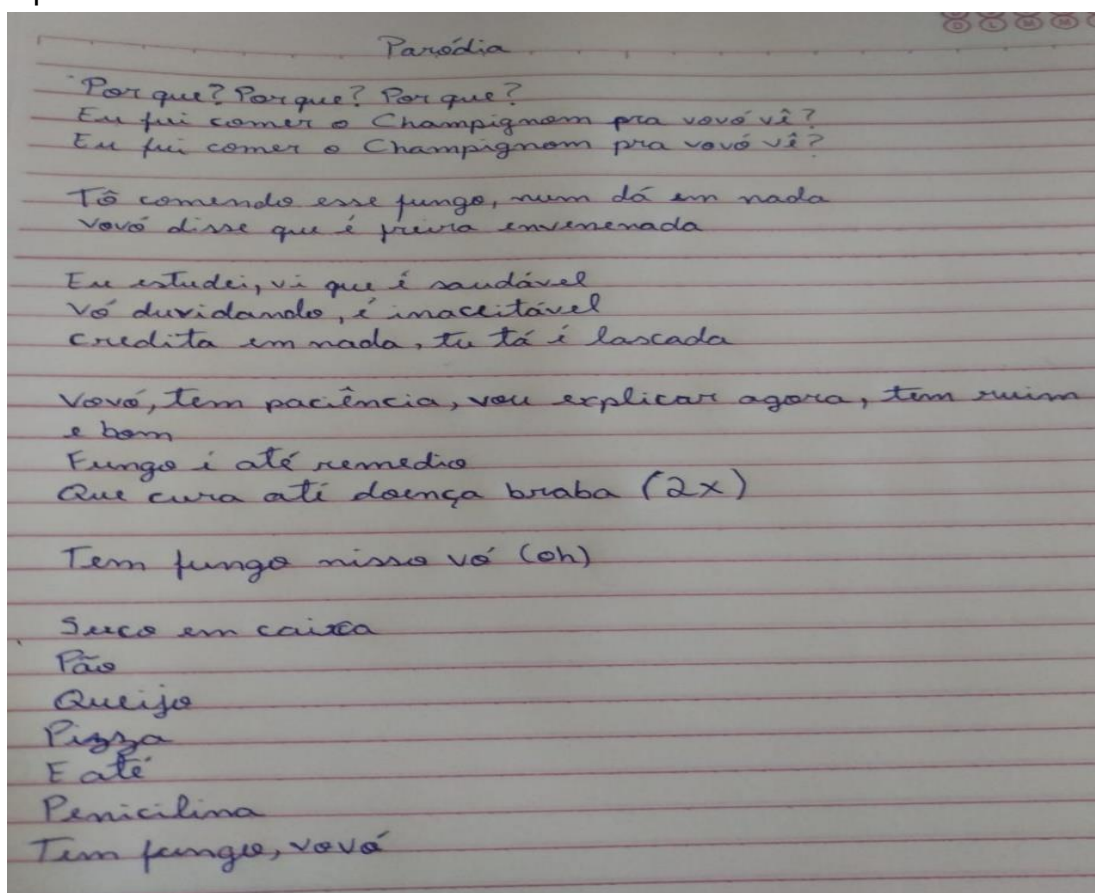 Paródia
Por que? Por que? Por que?
Eu fui comer o Champignom pra vovó vê?
Eu fui comer o Champignom pra vovó vê?
Tô comendo esse fungo, num dá em nada
Vovó disse que é freira envenenada
Eu estudei, vi que é saudável
Vó duvidando, é inaceitável
Credita em nada, tu tá é lascada
Vovó, tem paciência, vou explicar agora, tem ruim
e bom
Fungo é até remedio
Que cura até doença braba (2x)
Tem fungo nisso vó (oh)
Suco em caixa
Pão
Queijo
Pizza
E até
Penicilina
Tem fungo, vovó